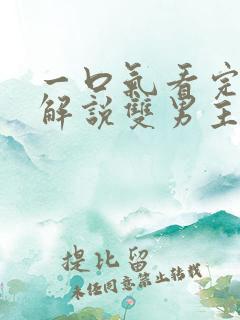 一口氣看完
解說雙男主
提比留
未经同意禁止转载